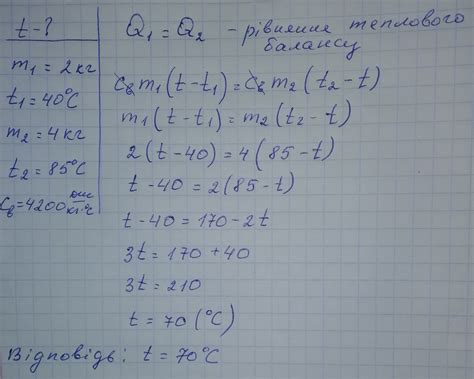 t - ?
m₁ = 2 кг
t₁ = 40°C
m₂ = 4 кг
t₂ = 85°C
Cв = 4200 Дж/кг·°C
Q₁ = Q₂ - рівняння теплового
балансу
Cв m₁ (t - t₁) = Cв m₂ (t₂ - t)
m₁ (t - t₁) = m₂ (t₂ - t)
2 (t - 40) = 4 (85 - t)
t - 40 = 2 (85 - t)
t - 40 = 170 - 2t
3t = 170 + 40
3t = 210
t = 70 (°C)
Відповідь: t = 70°C